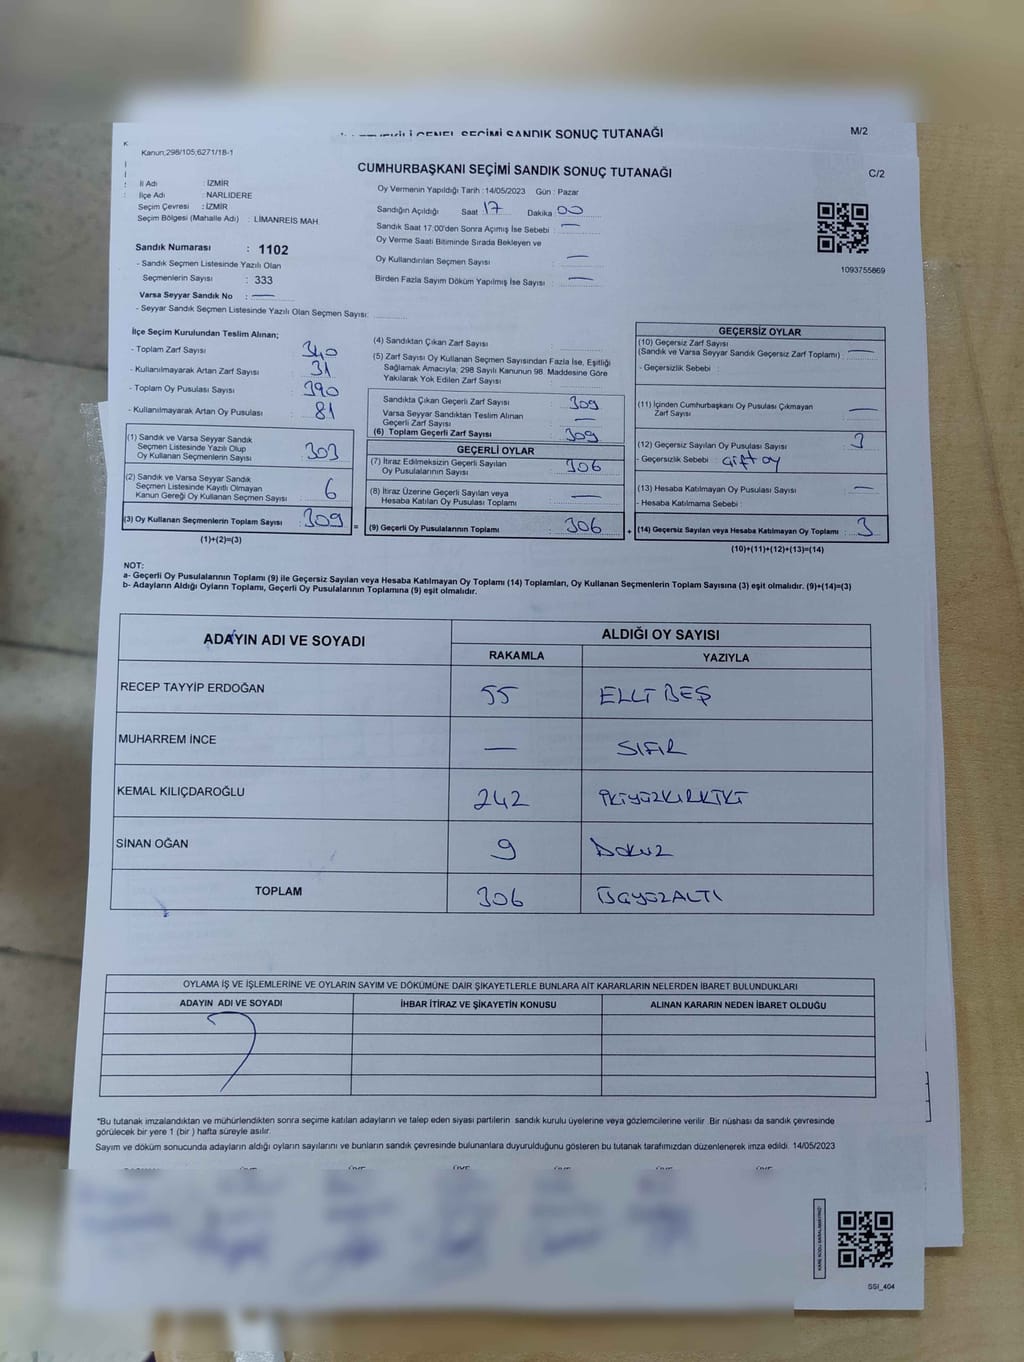 GENEL SEÇİMİ SANDIK SONUÇ TUTANAĞI
M/2
Kanun;298/105;6271/18-1
CUMHURBAŞKANI SEÇİMİ SANDIK SONUÇ TUTANAĞI
C/2
İl Adı : İZMİR
İlçe Adı : NARLIDERE
Seçim Çevresi : İZMİR
Seçim Bölgesi (Mahalle Adı) : LİMANREİS MAH.
Sandık Numarası : 1102
- Sandık Seçmen Listesinde Yazılı Olan
Seçmenlerin Sayısı : 333
Varsa Seyyar Sandık No : —
- Seyyar Sandık Seçmen Listesinde Yazılı Olan Seçmen Sayısı:
Oy Vermenin Yapıldığı Tarih : 14/05/2023 Gün : Pazar
Sandığın Açıldığı Saat 17 Dakika 00
Sandık Saat 17:00'den Sonra Açımış İse Sebebi : —
Oy Verme Saati Bitiminde Sırada Bekleyen ve
Oy Kullandırılan Seçmen Sayısı : —
Birden Fazla Sayım Döküm Yapılmış İse Sayısı : —
1093755869
İlçe Seçim Kurulundan Teslim Alınan;
- Toplam Zarf Sayısı : 340
- Kullanılmayarak Artan Zarf Sayısı : 31
- Toplam Oy Pusulası Sayısı : 390
- Kullanılmayarak Artan Oy Pusulası : 81
(1) Sandık ve Varsa Seyyar Sandık
Seçmen Listesinde Yazılı Olup
Oy Kullanan Seçmenlerin Sayısı : 303
(2) Sandık ve Varsa Seyyar Sandık
Seçmen Listesinde Kayıtlı Olmayan
Kanun Gereği Oy Kullanan Seçmen Sayısı : 6
(3) Oy Kullanan Seçmenlerin Toplam Sayısı : 309
(1)+(2)=(3)
(4) Sandıktan Çıkan Zarf Sayısı :
(5) Zarf Sayısı Oy Kullanan Seçmen Sayısından Fazla İse, Eşitliği
Sağlamak Amacıyla; 298 Sayılı Kanunun 98. Maddesine Göre
Yakılarak Yok Edilen Zarf Sayısı :
Sandıkta Çıkan Geçerli Zarf Sayısı : 309
Varsa Seyyar Sandıktan Teslim Alınan
Geçerli Zarf Sayısı : —
(6) Toplam Geçerli Zarf Sayısı : 309
GEÇERLİ OYLAR
(7) İtiraz Edilmeksizin Geçerli Sayılan
Oy Pusulalarının Sayısı : 306
(8) İtiraz Üzerine Geçerli Sayılan veya
Hesaba Katılan Oy Pusulası Toplamı : —
= (9) Geçerli Oy Pusulalarının Toplamı : 306
GEÇERSİZ OYLAR
(10) Geçersiz Zarf Sayısı
(Sandık ve Varsa Seyyar Sandık Geçersiz Zarf Toplamı) : —
- Geçersizlik Sebebi :
(11) İçinden Cumhurbaşkanı Oy Pusulası Çıkmayan
Zarf Sayısı : —
(12) Geçersiz Sayılan Oy Pusulası Sayısı : 3
- Geçersizlik Sebebi : Çift oy
(13) Hesaba Katılmayan Oy Pusulası Sayısı : —
- Hesaba Katılmama Sebebi :
+ (14) Geçersiz Sayılan veya Hesaba Katılmayan Oy Toplamı : 3
(10)+(11)+(12)+(13)=(14)
NOT:
a- Geçerli Oy Pusulalarının Toplamı (9) ile Geçersiz Sayılan veya Hesaba Katılmayan Oy Toplamı (14) Toplamları, Oy Kullanan Seçmenlerin Toplam Sayısına (3) eşit olmalıdır. (9)+(14)=(3)
b- Adayların Aldığı Oyların Toplamı, Geçerli Oy Pusulalarının Toplamına (9) eşit olmalıdır.
ADAYIN ADI VE SOYADI
ALDIĞI OY SAYISI
RAKAMLA YAZIYLA
RECEP TAYYİP ERDOĞAN 55 ELLİ BEŞ
MUHARREM İNCE — SIFIR
KEMAL KILIÇDAROĞLU 242 İKİYÜZKIRKİKİ
SİNAN OĞAN 9 DOKUZ
TOPLAM 306 ÜÇYÜZALTI
OYLAMA İŞ VE İŞLEMLERİNE VE OYLARIN SAYIM VE DÖKÜMÜNE DAİR ŞİKAYETLERLE BUNLARA AİT KARARLARIN NELERDEN İBARET BULUNDUKLARI
ADAYIN ADI VE SOYADI İHBAR İTİRAZ VE ŞİKAYETİN KONUSU ALINAN KARARIN NEDEN İBARET OLDUĞU
*Bu tutanak imzalandıktan ve mühürlendikten sonra seçime katılan adayların ve talep eden siyasi partilerin sandık kurulu üyelerine veya gözlemcilerine verilir. Bir nüshası da sandık çevresinde
görülecek bir yere 1 (bir ) hafta süreyle asılır.
Sayım ve döküm sonucunda adayların aldığı oyların sayılarını ve bunların sandık çevresinde bulunanlara duyurulduğunu gösteren bu tutanak tarafımızdan düzenlenerek imza edildi. 14/05/2023
SSI_404